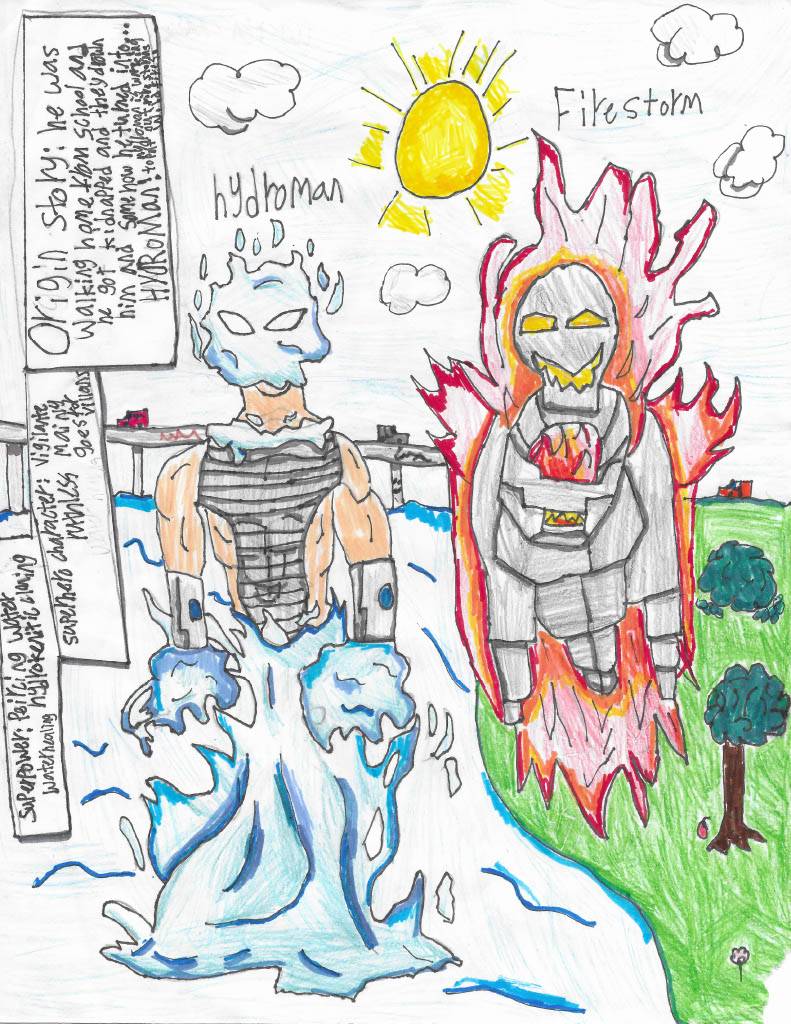 Origin story: he was
walking home from school and
he got kidnapped and they down
him and some how he turned into...
HYDROMAN!
hydroman
Firestorm
superhero character: vigilante
mainly
goes for
villans
superPower: Peircing water
hydrokenitic claning
water healing